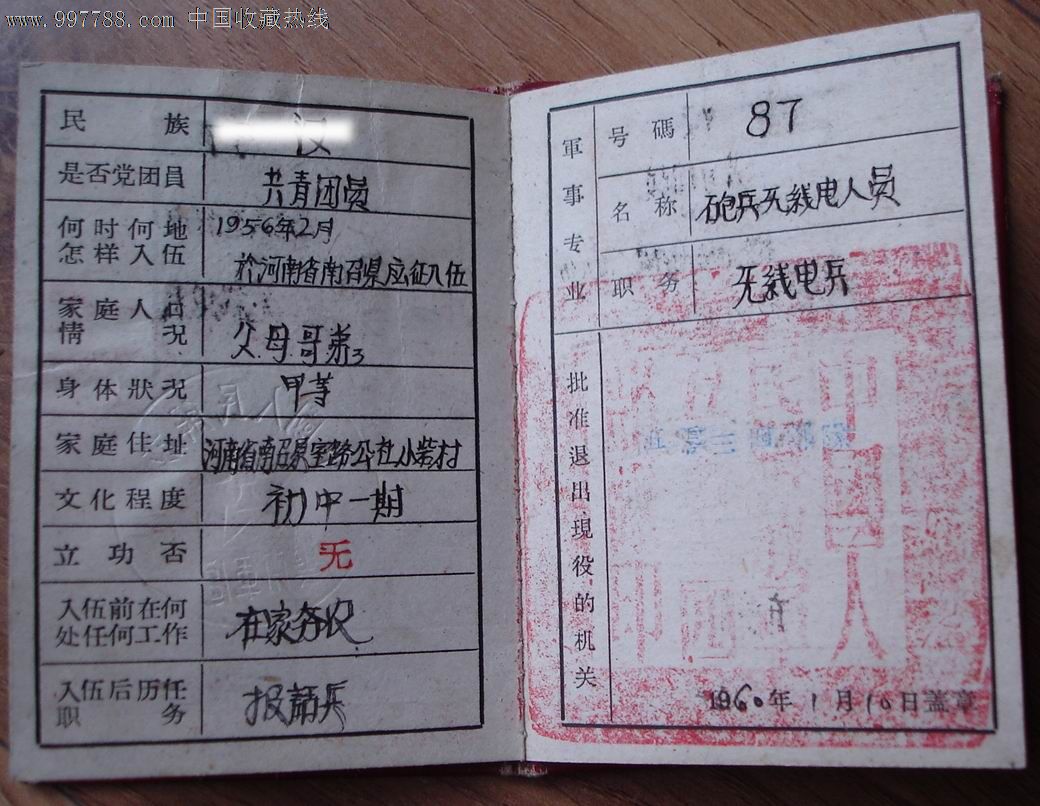 www.997788.com 中国收藏热线
民族 汉
是否党团員 共青团员
何时何地怎样入伍 1956年2月
於河南省南召県应征入伍
家庭人口情况 父母哥弟3
身体狀况 甲等
家庭住址 河南省南召県 公社小柴村
文化程度 初中一期
立功否 无
入伍前在何处任何工作 在家务农
入伍后历任职务 报話兵
軍事专业
号碼 87
名称 砲兵无线电人员
职务 无线电兵
批准退出現役的机关
1960年1月10日盖章